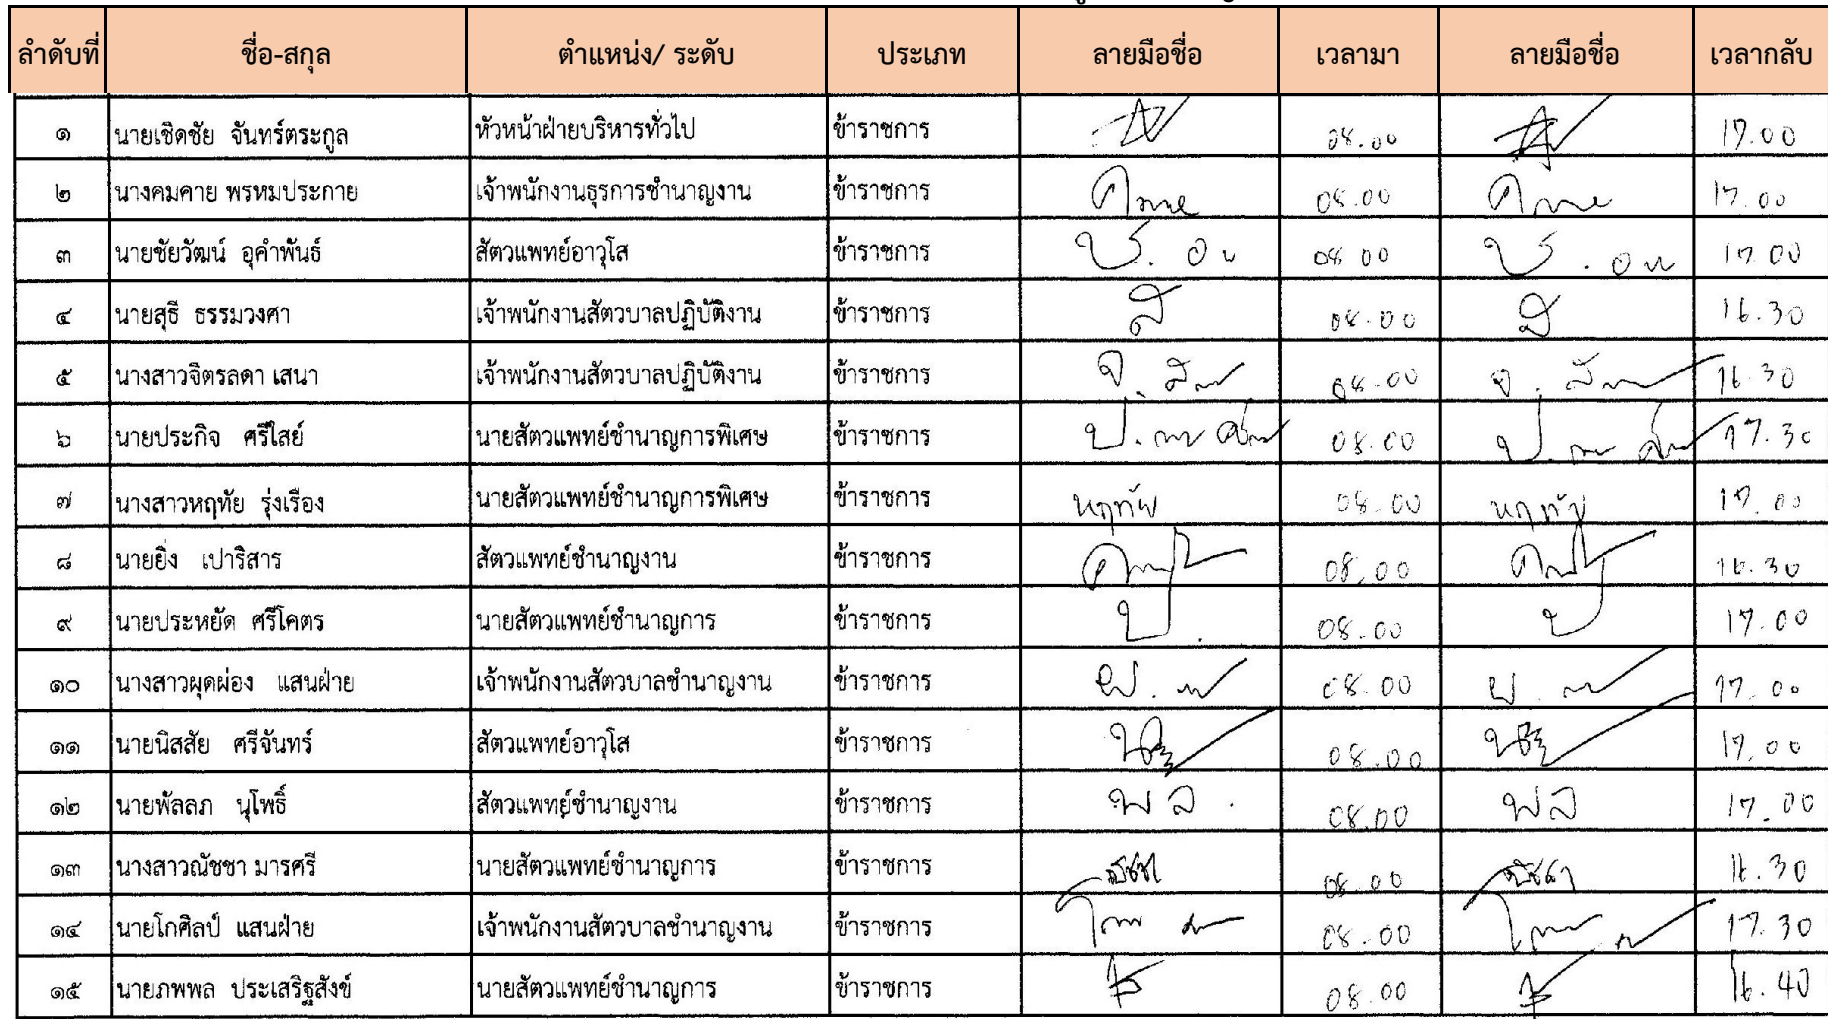 ลำดับที่ ชื่อ-สกุล ตำแหน่ง/ ระดับ ประเภท ลายมือชื่อ เวลามา ลายมือชื่อ เวลากลับ
๑ นายเชิดชัย จันทร์ตระกูล หัวหน้าฝ่ายบริหารทั่วไป ข้าราชการ 08.00 17.00
๒ นางคมคาย พรหมประกาย เจ้าพนักงานธุรการชำนาญงาน ข้าราชการ 08.00 17.00
๓ นายชัยวัฒน์ อุคำพันธ์ สัตวแพทย์อาวุโส ข้าราชการ 08 00 17.00
๔ นายสุธี ธรรมวงศา เจ้าพนักงานสัตวบาลปฏิบัติงาน ข้าราชการ ส 08.00 ส 16.30
๕ นางสาวจิตรลดา เสนา เจ้าพนักงานสัตวบาลปฏิบัติงาน ข้าราชการ 08.00 16.30
๖ นายประกิจ ศรีไสย์ นายสัตวแพทย์ชำนาญการพิเศษ ข้าราชการ 08.00 17.30
๗ นางสาวหฤทัย รุ่งเรือง นายสัตวแพทย์ชำนาญการพิเศษ ข้าราชการ หฤทัย 08.00 หฤทัย 17.00
๘ นายยิ่ง เปาริสาร สัตวแพทย์ชำนาญงาน ข้าราชการ 08.00 16.30
๙ นายประหยัด ศรีโคตร นายสัตวแพทย์ชำนาญการ ข้าราชการ ป. 08.00 ป 17.00
๑๐ นางสาวผุดผ่อง แสนฝ่าย เจ้าพนักงานสัตวบาลชำนาญงาน ข้าราชการ 08.00 17.00
๑๑ นายนิสสัย ศรีจันทร์ สัตวแพทย์อาวุโส ข้าราชการ 08.00 17.00
๑๒ นายพัลลภ นุโพธิ์ สัตวแพทย์ชำนาญงาน ข้าราชการ พล. 08.00 พล 17.00
๑๓ นางสาวณัชชา มารศรี นายสัตวแพทย์ชำนาญการ ข้าราชการ ณัชชา 08.00 ณัชชา 16.30
๑๔ นายโกศิลป์ แสนฝ่าย เจ้าพนักงานสัตวบาลชำนาญงาน ข้าราชการ 08.00 17.30
๑๕ นายภพพล ประเสริฐสังข์ นายสัตวแพทย์ชำนาญการ ข้าราชการ 08.00 16.40